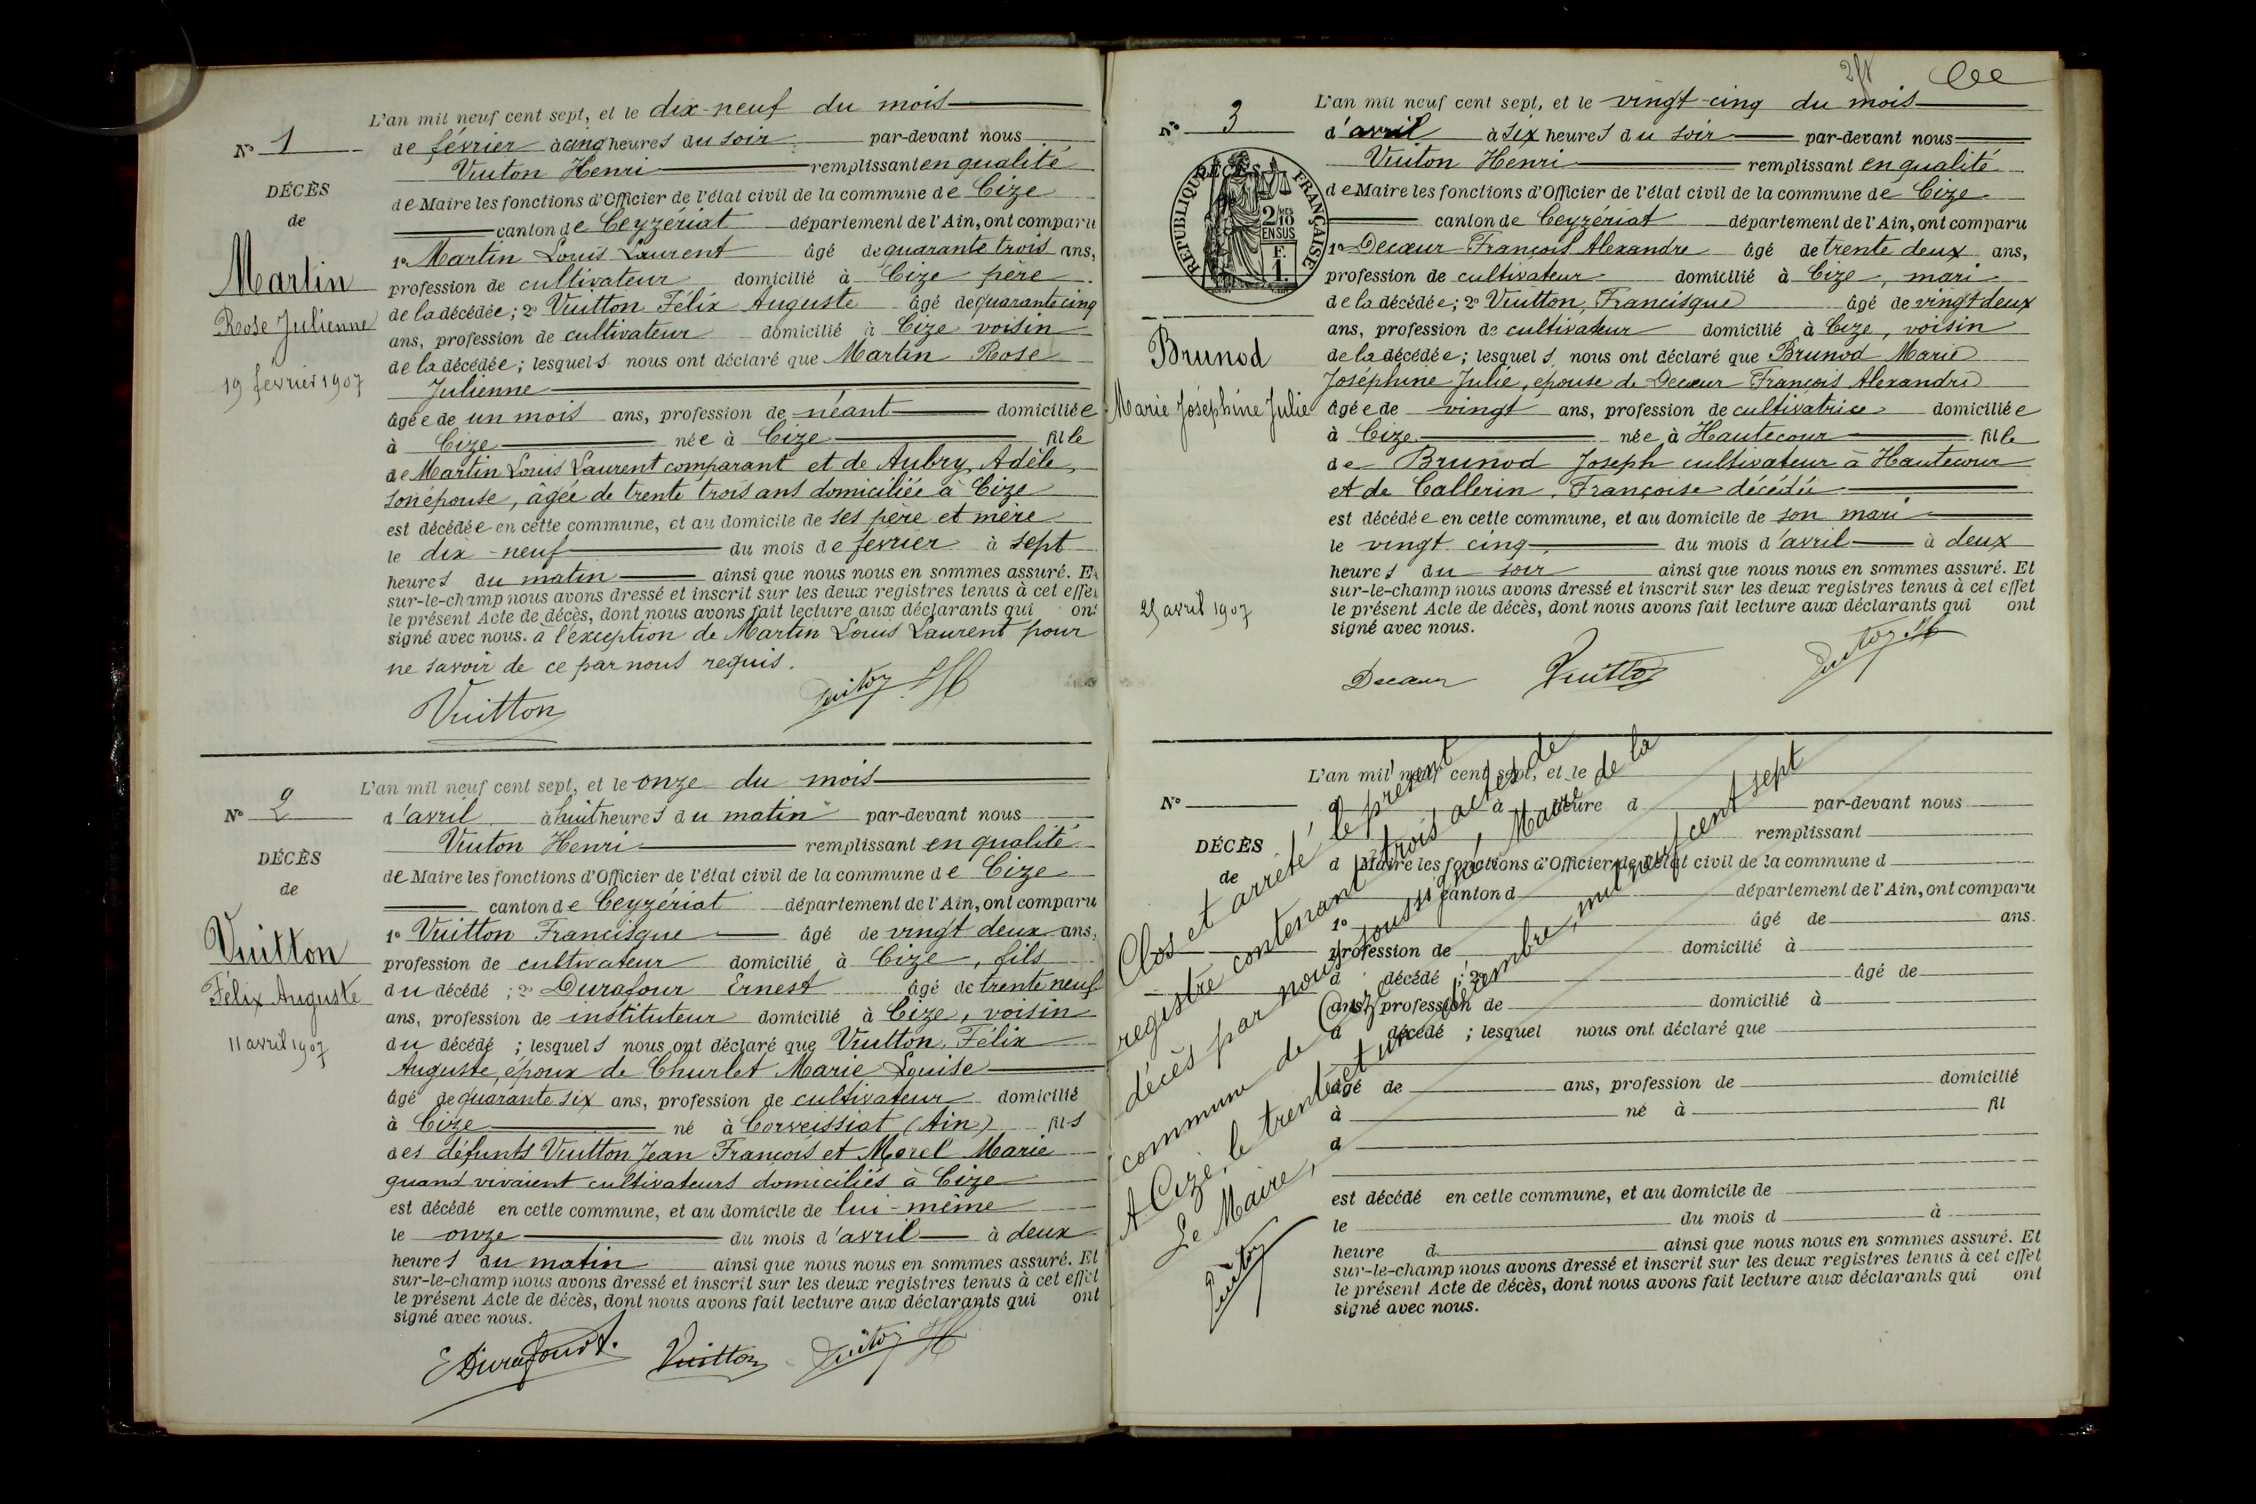 L'an mil neuf cent sept, et le dix-neuf du mois
N° 1
de février à cinq heures du soir par-devant nous
Vuiton Henri remplissant en qualité
DÉCÈS
de Maire les fonctions d'Officier de l'état civil de la commune de Cize
de
canton de Ceyzériat département de l'Ain, ont comparu
Martin
1° Martin Louis Laurent âgé de quarante trois ans,
profession de cultivateur domicilié à Cize père
Rose Julienne
de la décédée; 2° Vuitton Félix Auguste âgé de quarante cinq
ans, profession de cultivateur domicilié à Cize voisin
19 février 1907
de la décédée; lesquels nous ont déclaré que Martin Rose
Julienne
âgée de un mois ans, profession de néant domiciliée
à Cize née à Cize fille
de Martin Louis Laurent comparant et de Aubry Adèle,
son épouse, âgée de trente trois ans domiciliée à Cize
est décédée en cette commune, et au domicile de ses père et mère
le dix-neuf du mois de février à sept
heures du matin ainsi que nous nous en sommes assuré. Et
sur-le-champ nous avons dressé et inscrit sur les deux registres tenus à cet effet
le présent Acte de décès, dont nous avons fait lecture aux déclarants qui ont
signé avec nous. à l'exception de Martin Louis Laurent pour
ne savoir de ce par nous requis.
Vuitton Vuiton H
L'an mil neuf cent sept, et le onze du mois
N° 2
d'avril à huit heures du matin par-devant nous
Vuiton Henri remplissant en qualité
DÉCÈS
de Maire les fonctions d'Officier de l'état civil de la commune de Cize
de
canton de Ceyzériat département de l'Ain, ont comparu
Vuitton
1° Vuitton Francisque âgé de vingt deux ans,
profession de cultivateur domicilié à Cize, fils
Félix Auguste
du décédé ; 2° Durafour Ernest âgé de trente neuf
ans, profession de instituteur domicilié à Cize, voisin
11 avril 1907
du décédé ; lesquels nous ont déclaré que Vuitton Félix
Auguste, époux de Churlet Marie Louise
âgé de quarante six ans, profession de cultivateur domicilié
à Cize né à Corveissiat (Ain) fils
des défunts Vuitton Jean François et Morel Marie
quand vivaient cultivateurs domiciliés à Cize
est décédé en cette commune, et au domicile de lui-même
le onze du mois d'avril à deux
heures du matin ainsi que nous nous en sommes assuré. Et
sur-le-champ nous avons dressé et inscrit sur les deux registres tenus à cet effet
le présent Acte de décès, dont nous avons fait lecture aux déclarants qui ont
signé avec nous.
E Durafour Vuitton Vuiton H
L'an mil neuf cent sept, et le vingt-cinq du mois
N° 3
d'avril à six heures du soir par-devant nous
Vuiton Henri remplissant en qualité
DÉCÈS
RÉPUBLIQUE FRANÇAISE
2/10 MES EN SUS
F. 1.
de Maire les fonctions d'Officier de l'état civil de la commune de Cize
canton de Ceyzériat département de l'Ain, ont comparu
1° Decœur François Alexandre âgé de trente deux ans,
profession de cultivateur domicilié à Cize, mari
de la décédée; 2° Vuitton, Francisque âgé de vingt deux
ans, profession de cultivateur domicilié à Cize, voisin
Brunod
de la décédée; lesquels nous ont déclaré que Brunod Marie
Joséphine Julie, épouse de Decœur François Alexandre
Marie Joséphine Julie
âgée de vingt ans, profession de cultivatrice domiciliée
à Cize née à Hautecour fille
de Brunod Joseph cultivateur à Hautecour
et de Callerin, Françoise décédée
est décédée en cette commune, et au domicile de son mari
le vingt cinq du mois d'avril à deux
heures du soir ainsi que nous nous en sommes assuré. Et
sur-le-champ nous avons dressé et inscrit sur les deux registres tenus à cet effet
25 avril 1907
le présent Acte de décès, dont nous avons fait lecture aux déclarants qui ont
signé avec nous.
Decœur Vuitton Vuiton H
L'an mil neuf cent sept, et le
N°
d à heure d par-devant nous
remplissant
DÉCÈS
d Maire les fonctions d'Officier de l'état civil de la commune d
de
canton d département de l'Ain, ont comparu
1° âgé de ans.
profession de domicilié à
d décédé ; 2° âgé de
ans, profession de domicilié à
d décédé ; lesquel nous ont déclaré que
âgé de ans, profession de domicilié
à né à fil
d
est décédé en cette commune, et au domicile de
le du mois d à
heure d ainsi que nous nous en sommes assuré. Et
sur-le-champ nous avons dressé et inscrit sur les deux registres tenus à cet effet
le présent Acte de décès, dont nous avons fait lecture aux déclarants qui ont
signé avec nous.
Clos et arrêté le présent
registre contenant trois actes de
décès par nous soussigné, Maire de la
commune de Cize
A Cize, le trente et un décembre, mil neuf cent sept
Le Maire,
Vuiton